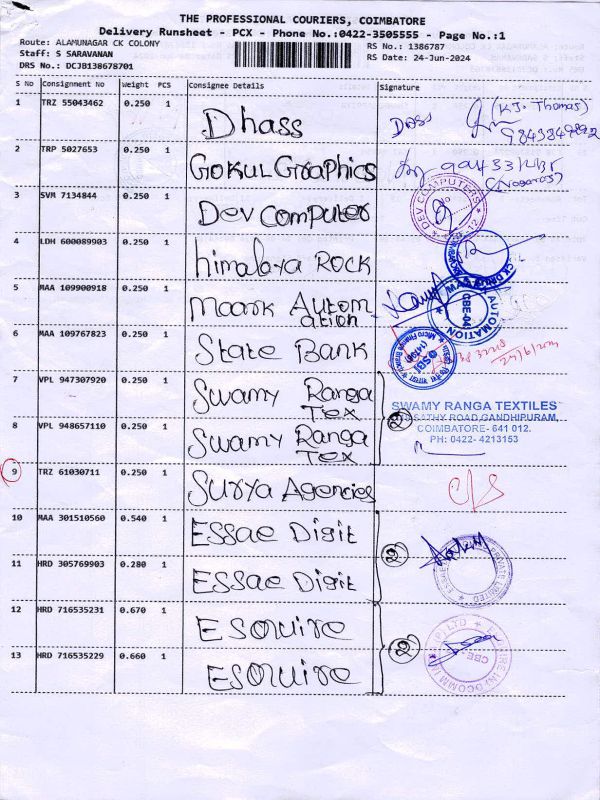 THE PROFESSIONAL COURIERS, COIMBATORE
Delivery Runsheet - PCX - Phone No.:0422-3505555 - Page No.:1
Route: ALAMUNAGAR CK COLONY
RS No.: 1386787
Staff: S SARAVANAN
RS Date: 24-Jun-2024
DRS No.: DCJB138678701
S No Consignment No Weight PCS Consignee Details Signature
1 TRZ 55043462 0.250 1 Dhass DASS (K.J. Thomas)
2 TRP 5027653 0.250 1 Gokul Graphics
3 SVM 7134844 0.250 1 Dev Computer DEV COMPUTERS
4 LDH 600089903 0.250 1 himalaya Rock
5 MAA 109900918 0.250 1 Maark Autom
ation AUTOMATION CBE-04
6 MAA 109767823 0.250 1 State Bank
7 VPL 947307920 0.250 1 Swamy Ranga
Tex
SWAMY RANGA TEXTILES
GANDHIPURAM,
8 VPL 948657110 0.250 1 Swamy Ranga
Tex
COIMBATORE- 641 012.
PH: 0422- 4213153
9 TRZ 61030711 0.250 1 Surya Agencies C/S
10 MAA 301510560 0.540 1 Essae Digit
11 HRD 305769903 0.280 1 Essae Digit
12 HRD 716535231 0.670 1 Esquire
13 HRD 716535229 0.660 1 Esquire